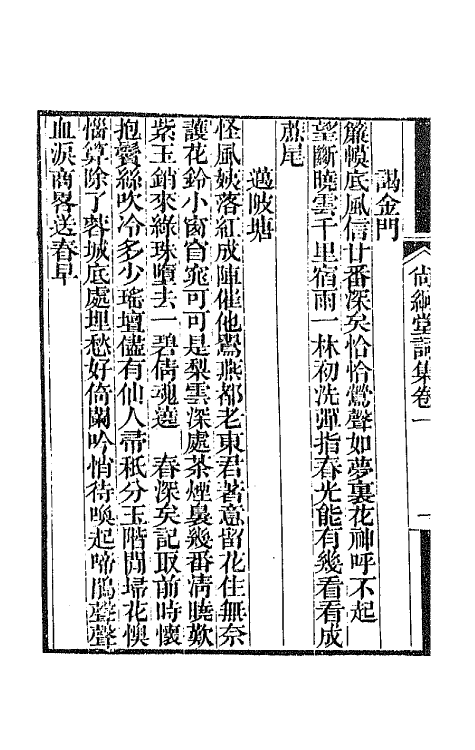 尙絅堂詞集卷一　一
謁金門
簾幙底風信廿番深矣恰恰鶯聲如夢裏花神呼不起
望斷曉雲千里宿雨一林初洗彈指春光能有幾看看成
蔗尾
邁陂塘
怪風姨落紅成陣催他鶯燕都老東君著意留花住無奈
護花鈴小窗窅窕可可是梨雲深處茶煙裊幾番淸曉歎
紫玉銷來綠珠墮去一碧倩魂遶　春深矣記取前時懷
抱鬢絲吹冷多少瑤壇儘有仙人帚秖分玉階閒埽花懊
惱算除了蓉城底處埋愁好倚闌吟悄待喚起啼鵑聲聲
血淚商畧送春早